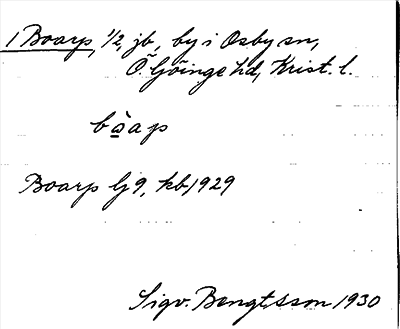 1 Boarp, 1/2, jb, by i Osby sn,
Ö. Göinge hd, Krist. l.
bòap
Boarp lj 9, kb 1929
Sigv. Bengtsson 1930